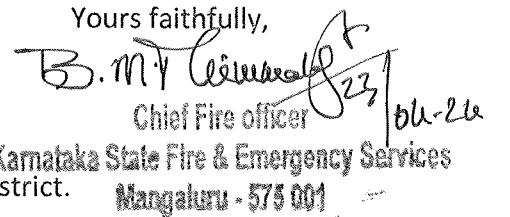 Yours faithfully,
B. M.
23/04-24
Chief Fire officer
Karnataka State Fire & Emergency Services
strict.
Mangaluru - 575 001